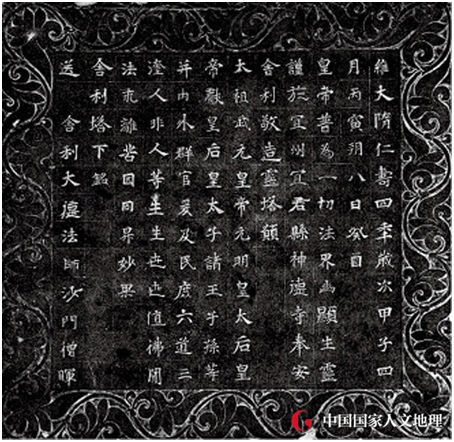 維大隋仁壽四年歲次甲子四
月丙寅朔八日癸酉
皇帝普為一切法界幽顯生靈
謹於宜州宜君縣神德寺奉安
舍利敬造靈塔願
太祖武元皇帝元明皇太后皇
帝獻皇后皇太子諸王子孫等
并内外群官爰及民庶六道三
塗人非人等生生世世值佛聞
法永離苦因同昇妙果
舍利塔下銘
送 舍利大德法師沙門僧暉
中国国家人文地理